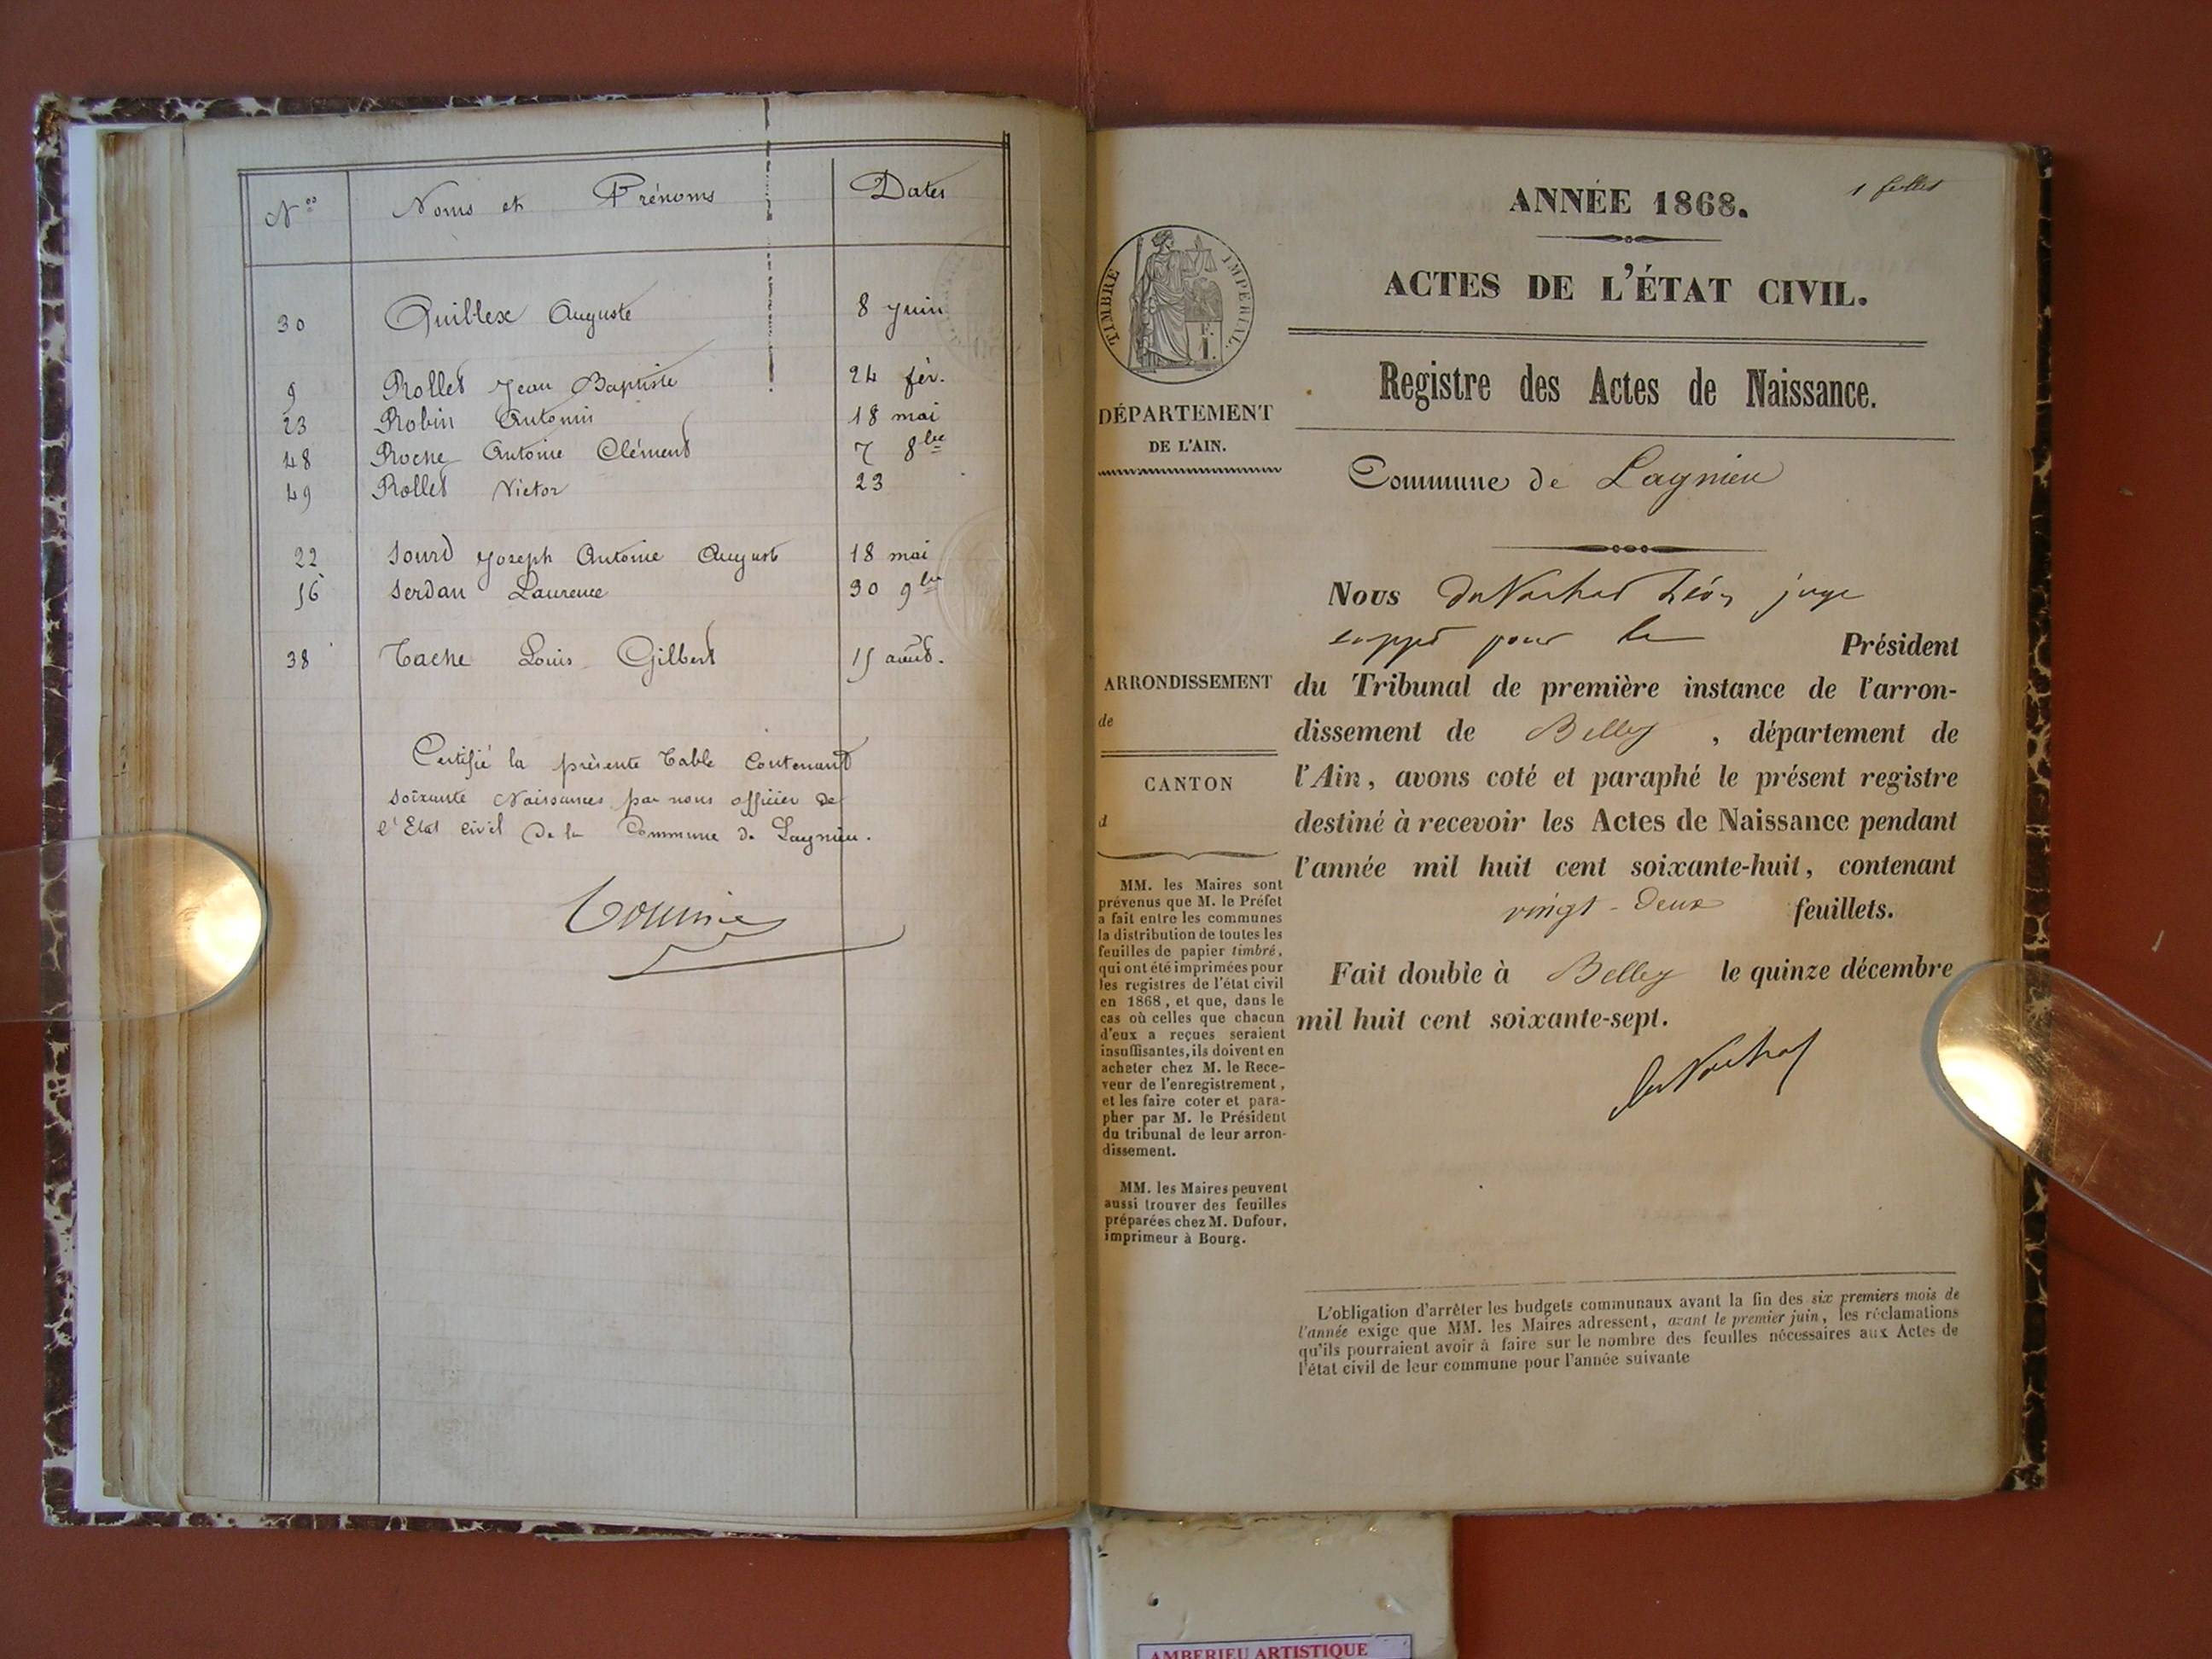 Nos Noms et Prénoms Dates
30 Quiblex Auguste 8 Juin
9 Rollet Jean Baptiste 24 fév.
23 Robin Antonin 18 mai
48 Roche Antoine Clément 7 8bre
49 Rollet Victor 23
22 Sourd Joseph Antoine August 18 mai
56 Serdan Laurence 30 9bre
38 Tache Louis Gilbert 15 août.
Certifié la présente Table Contenant
soixante Naissances par nous officier de
l'Etat civil de la Commune de Lagnieu.
1 feuillet
ANNÉE 1868.
ACTES DE L'ÉTAT CIVIL.
Registre des Actes de Naissance.
Commune de Lagnieu
TIMBRE IMPÉRIAL
DÉPARTEMENT
DE L'AIN.
ARRONDISSEMENT
de
CANTON
d
MM. les Maires sont
prévenus que M. le Préfet
a fait entre les communes
la distribution de toutes les
feuilles de papier timbré,
qui ont été imprimées pour
les registres de l'état civil
en 1868, et que, dans le
cas où celles que chacun
d'eux a reçues seraient
insuffisantes, ils doivent en
acheter chez M. le Rece-
veur de l'enregistrement,
et les faire coter et para-
pher par M. le Président
du tribunal de leur arron-
dissement.
MM. les Maires peuvent
aussi trouver des feuilles
préparées chez M. Dufour,
imprimeur à Bourg.
Nous Léon juge
suppt pour le Président
du Tribunal de première instance de l'arron-
dissement de Belley, département de
l'Ain, avons coté et paraphé le présent registre
destiné à recevoir les Actes de Naissance pendant
l'année mil huit cent soixante-huit, contenant
vingt-deux feuillets.
Fait double à Belley le quinze décembre
mil huit cent soixante-sept.
L'obligation d'arrêter les budgets communaux avant la fin des six premiers mois de
l'année exige que MM. les Maires adressent, avant le premier juin, les réclamations
qu'ils pourraient avoir à faire sur le nombre des feuilles nécessaires aux Actes de
l'état civil de leur commune pour l'année suivante
AMBERIEU ARTISTIQUE